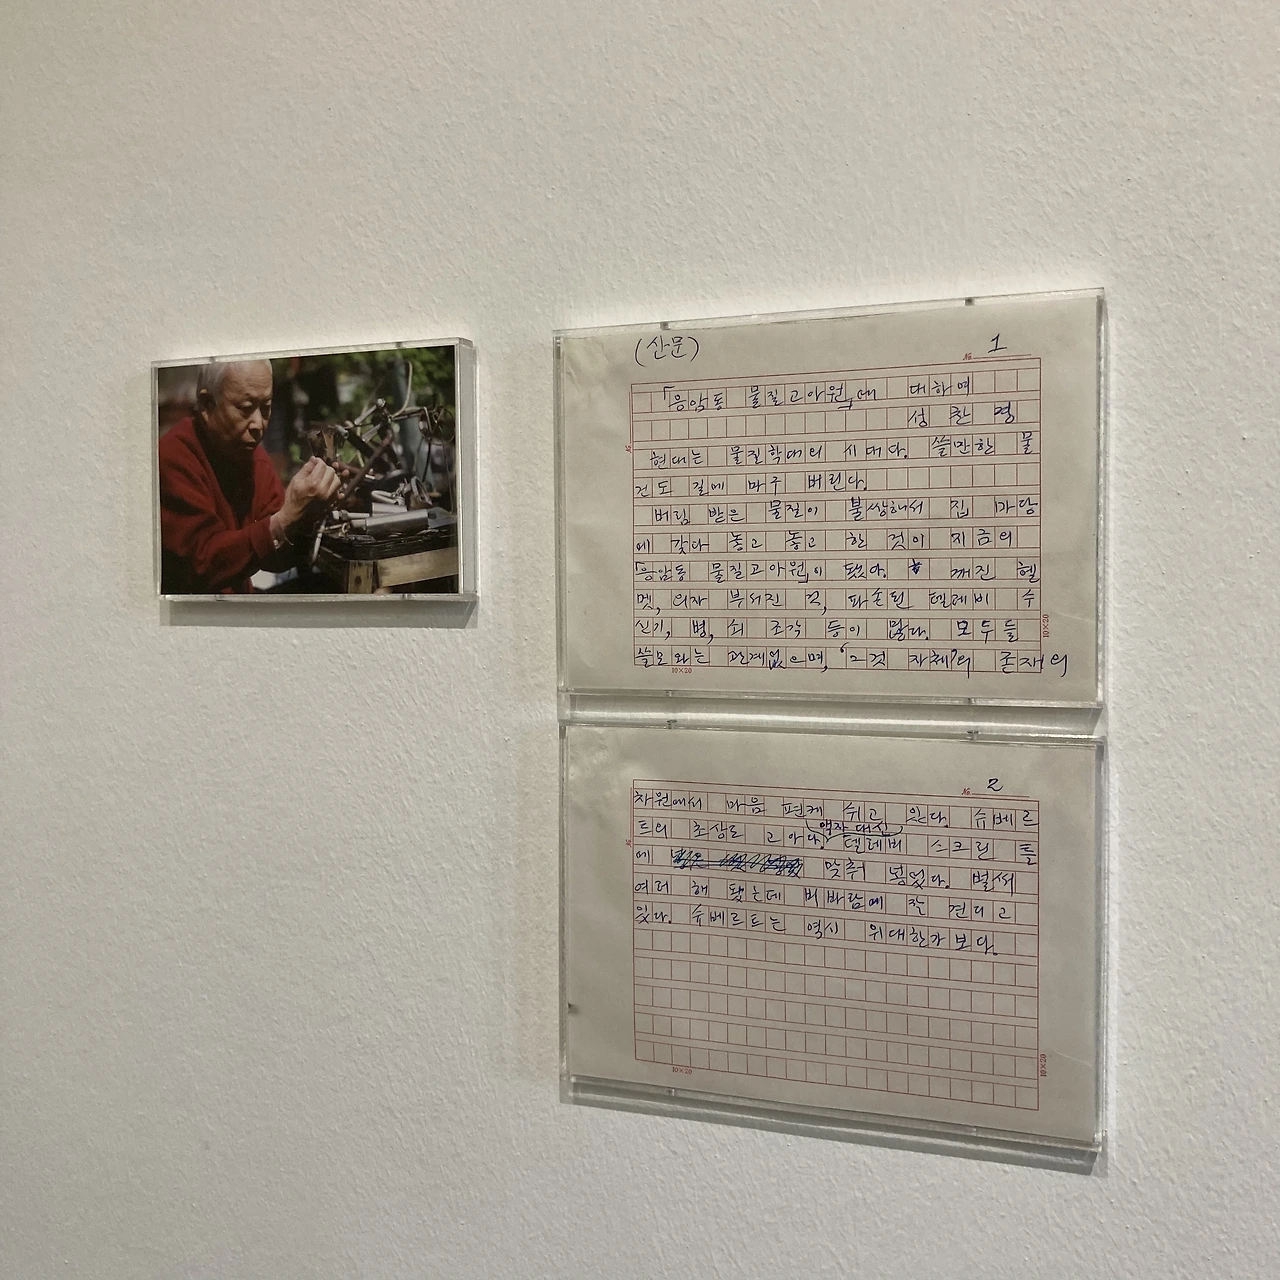 (산문)
№ 1
「응암동 물질고아원」에 대하여
성찬경
현대는 물질학대의 시대다. 쓸만한 물
건도 길에 마구 버린다.
버림 받은 물질이 불쌍해서 집 마당
에 갖다 놓고 놓고 한 것이 지금의
「응암동 물질고아원」이 됐다. 깨진 헬
멧, 의자 부서진 것, 파손된 텔레비 수
신기, 병, 쇠 조각 등이 많다. 모두들
쓸모와는 관계없으며, '그것 자체'의 존재의
10×20
10×20
№ 2
차원에서 마음 편케 쉬고 있다. 슈베르
트의 초상도 고아다. 액자 대신 텔레비 스크린 틀
에 맞춰 넣었다. 벌써
여러 해 됐는데 비바람에 잘 견디고
있다. 슈베르트는 역시 위대한가 보다.
10×20
10×20